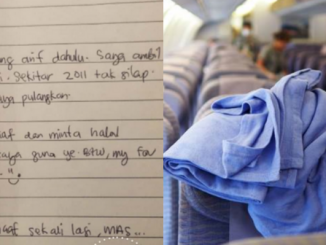 ng arif dahulu. Saya ambil
i. Sekitar 2011 tak silap.
aya pulangkan
af dan minta halal
aya guna ye BTW, my fav
af sekali lagi, MAS...